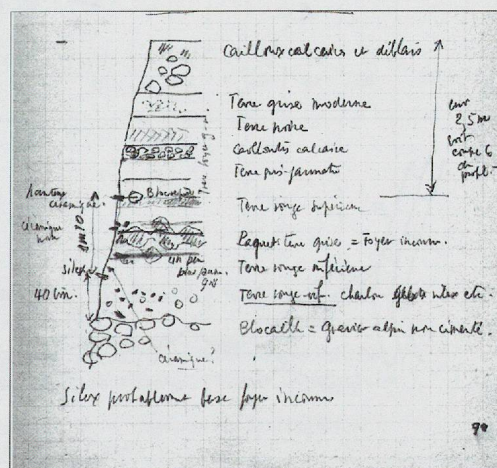 Cailloux calcaires et déblais
Terre grise moderne
Terre noire
Cailloutis calcaire
Terre gris-jaunâtre
Terre rouge supérieure
Paquet terre grise = Foyer inconnu.
Terre rouge inférieure
Terre rouge-vif. charbon silex etc.
Blocaille = gravier alpin non cimenté.
env
2,5 m
coupe 6
du profil
céramique.
céramique
silex
40 cm.
1m10
un peu
plus
gris
céramique?
Silex probablement base foyer inconnu